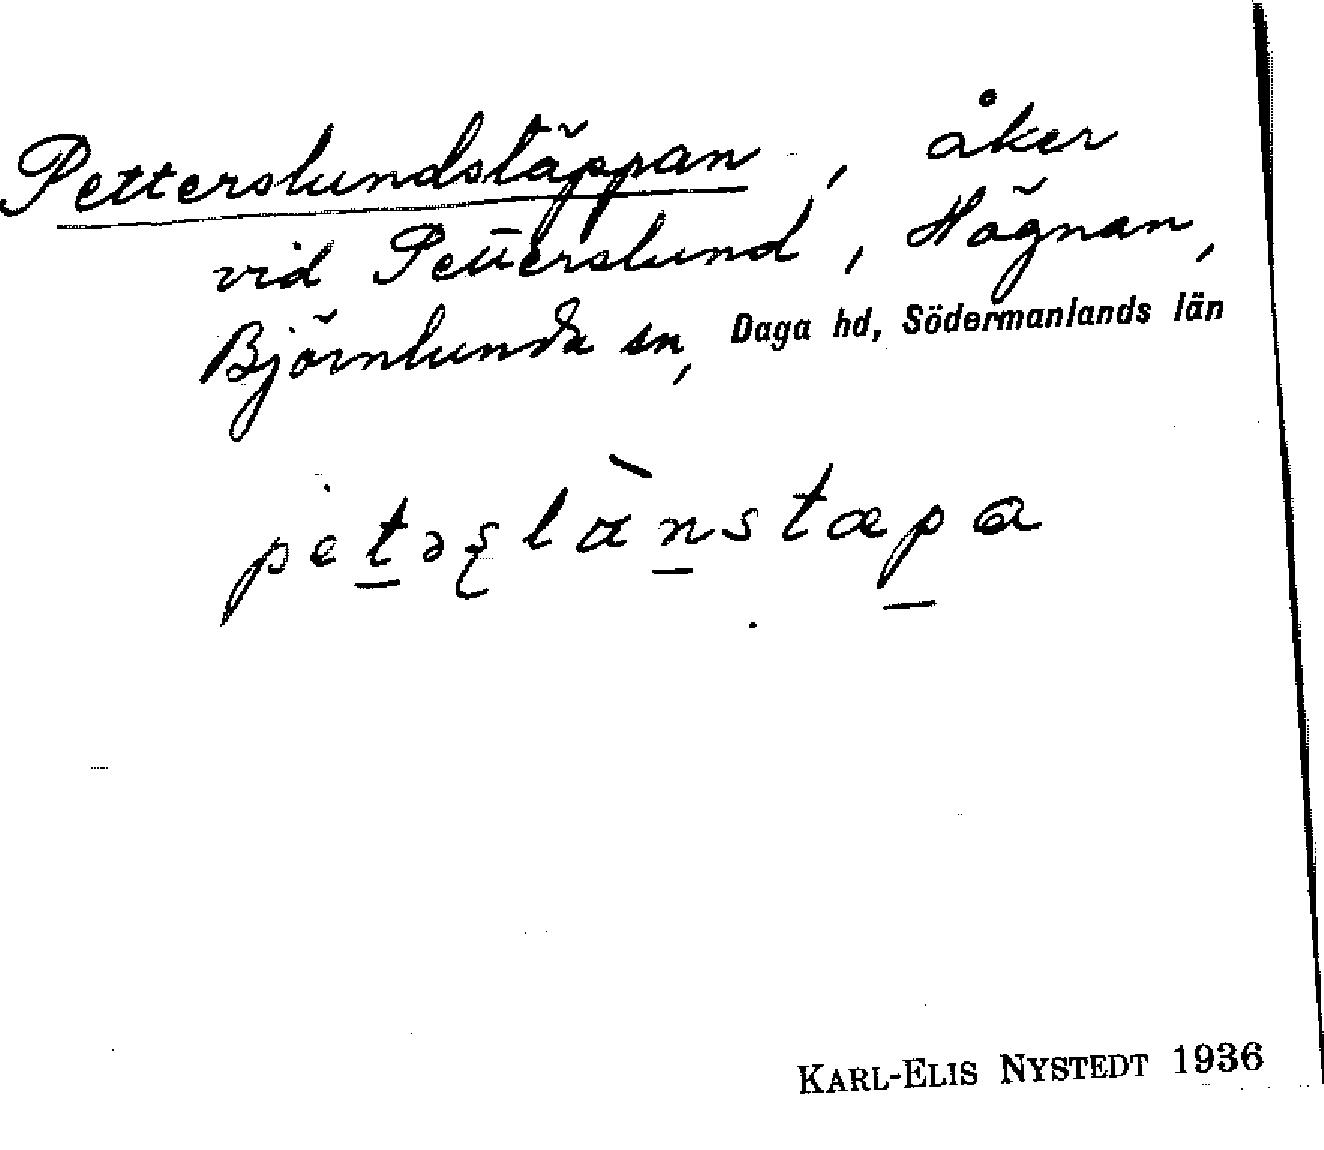 Petterslundstäppan, åker
vid Petterslund, Högnan,
Björnlunda sn, Daga hd, Södermanlands län
petəʂlànstæpa
KARL-ELIS NYSTEDT 1936